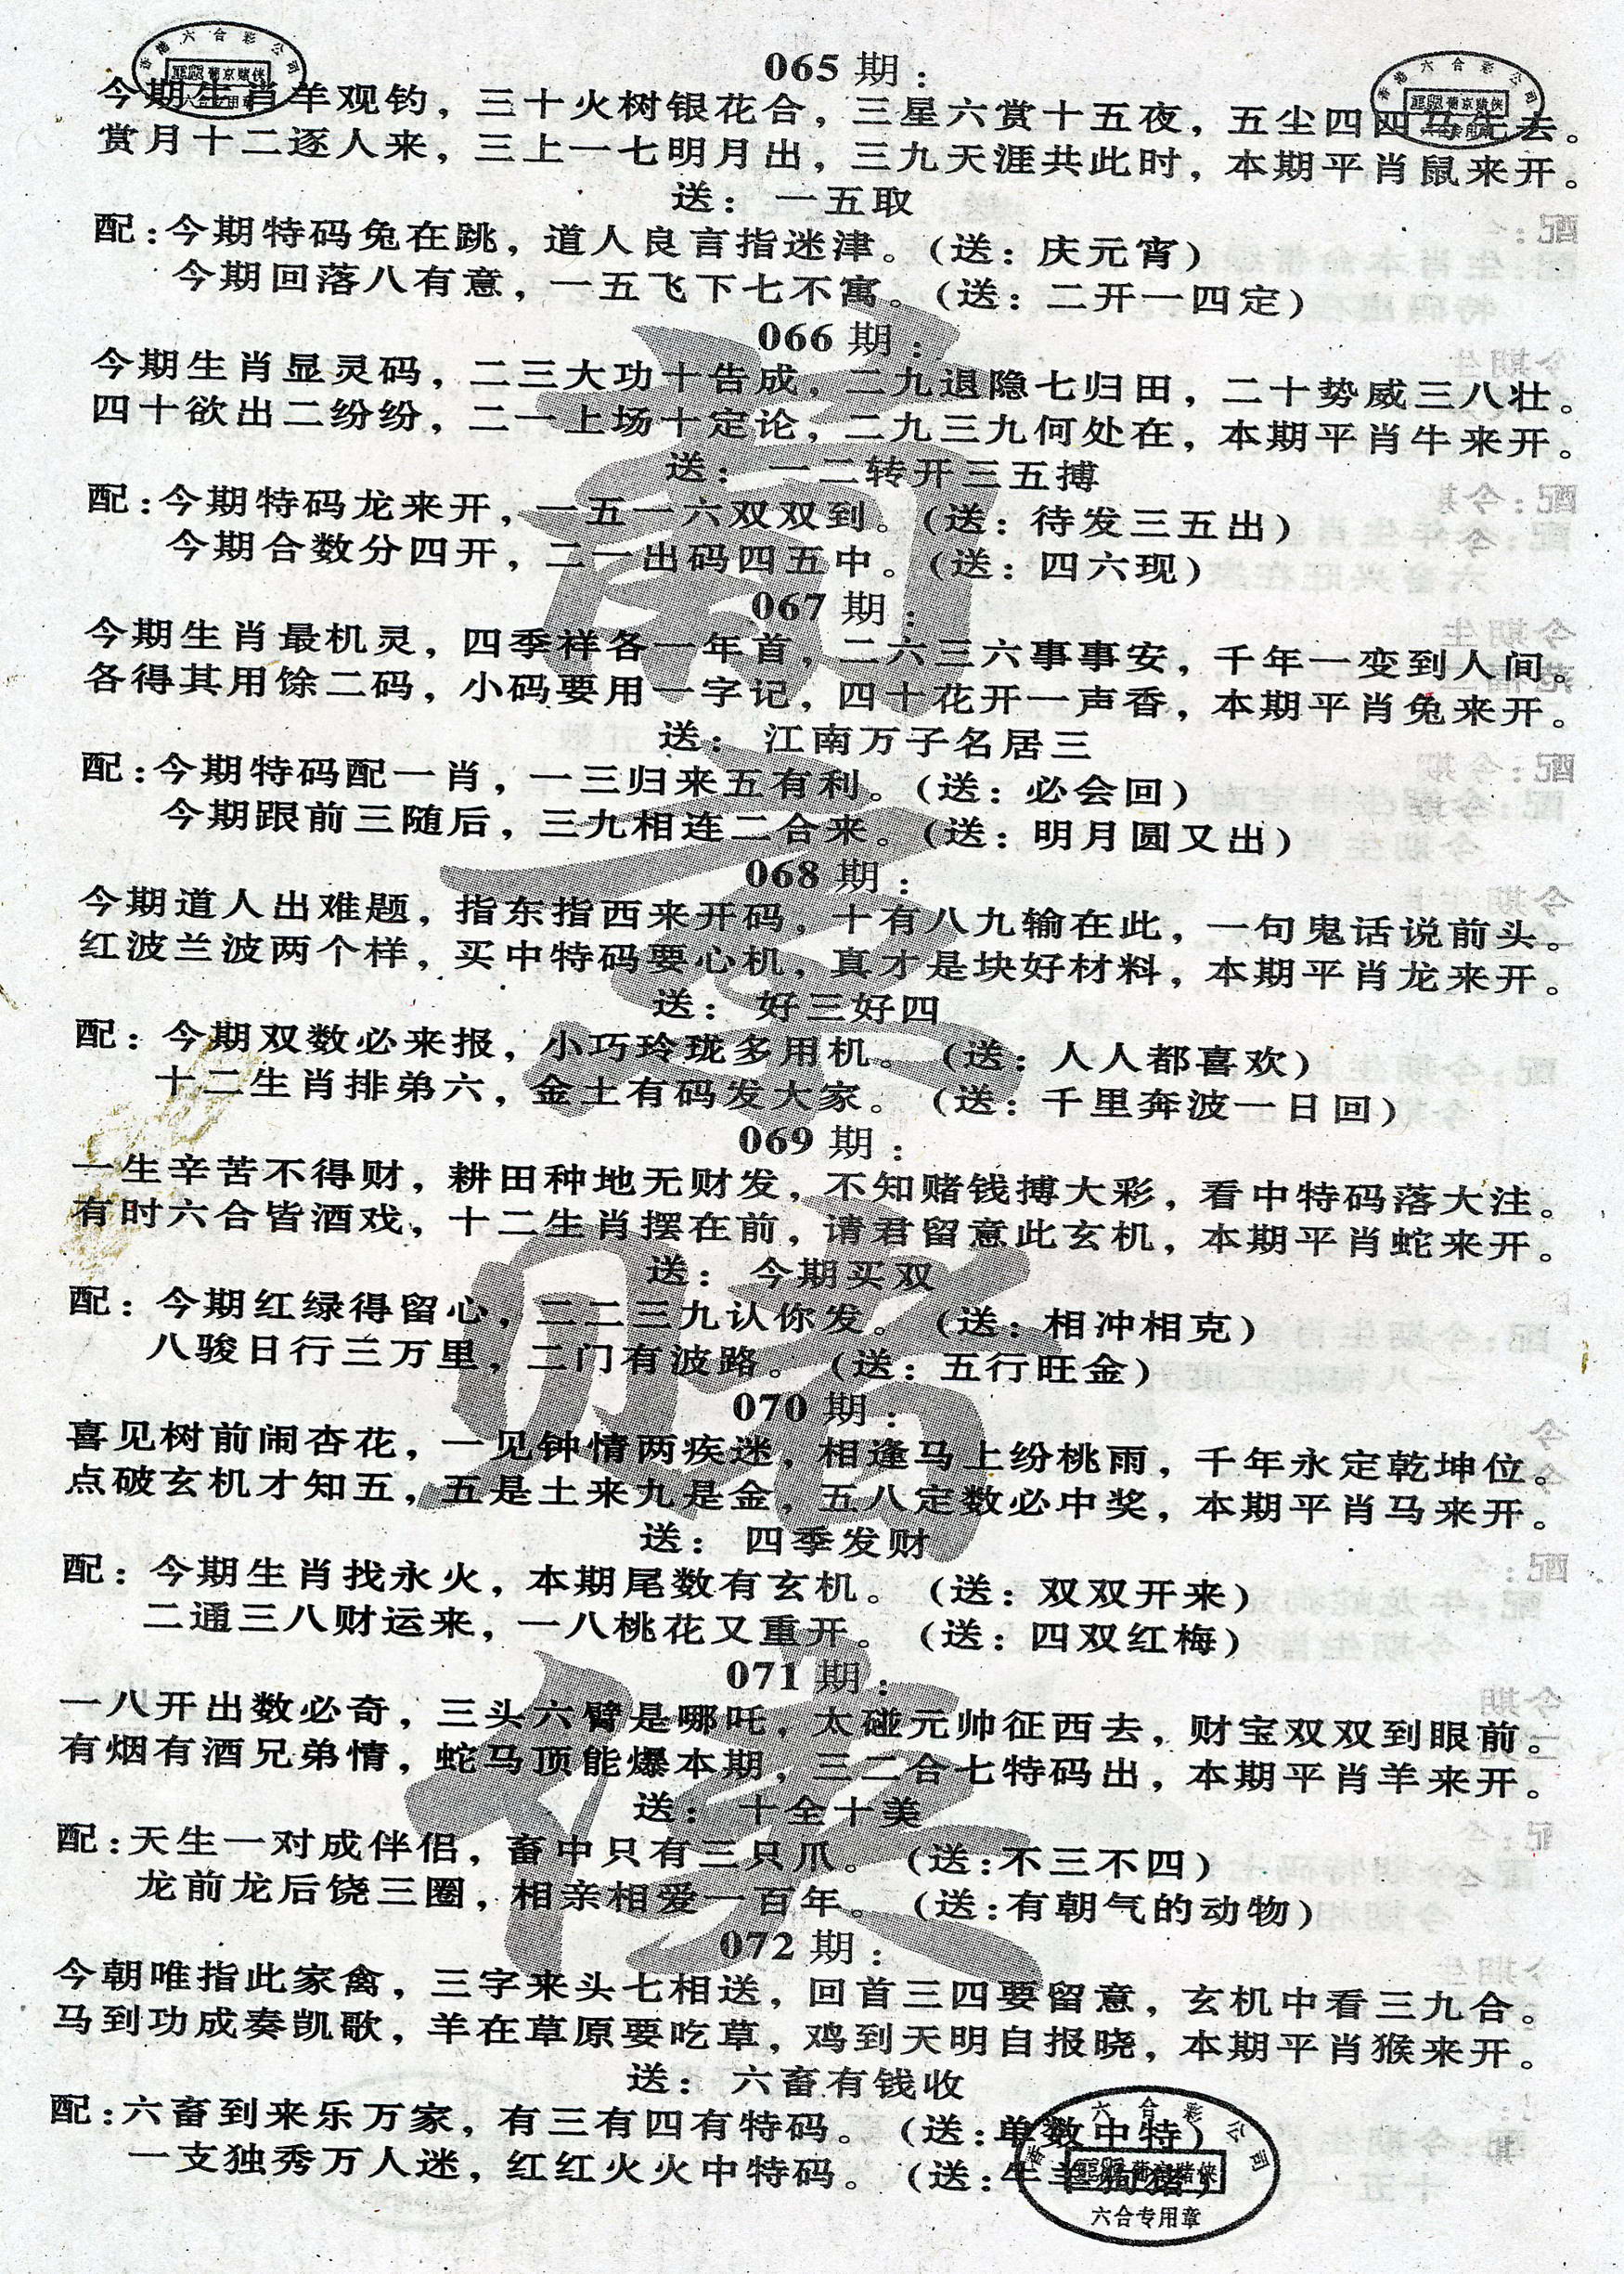 065期：
今期生肖羊观钓，三十火树银花合，三星六赏十五夜，五尘四四马先去。
赏月十二逐人来，三上一七明月出，三九天涯共此时，本期平肖鼠来开。
送：一五取
配：今期特码兔在跳，道人良言指迷津。（送：庆元宵）
今期回落八有意，一五飞下七不寓。（送：二开一四定）
066期：
今期生肖显灵码，二三大功十告成，二九退隐七归田，二十势威三八壮。
四十欲出二纷纷，二一上场十定论，二九三九何处在，本期平肖牛来开。
送：一二转开三五搏
配：今期特码龙来开，一五一六双双到。（送：待发三五出）
今期合数分四开，二一出码四五中。（送：四六现）
067期：
今期生肖最机灵，四季祥各一年首，二六三六事事安，千年一变到人间。
各得其用馀二码，小码要用一字记，四十花开一声香，本期平肖兔来开。
送：江南万子名居三
配：今期特码配一肖，一三归来五有利。（送：必会回）
今期跟前三随后，三九相连二合来。（送：明月圆又出）
068期：
今期道人出难题，指东指西来开码，十有八九输在此，一句鬼话说前头。
红波兰波两个样，买中特码要心机，真才是块好材料，本期平肖龙来开。
送：好三好四
配：今期双数必来报，小巧玲珑多用机。（送：人人都喜欢）
十二生肖排弟六，金土有码发大家。（送：千里奔波一日回）
069期：
一生辛苦不得财，耕田种地无财发，不知赌钱搏大彩，看中特码落大注。
有时六合皆酒戏，十二生肖摆在前，请君留意此玄机，本期平肖蛇来开。
送：今期买双
配：今期红绿得留心，二二三九认你发。（送：相冲相克）
八骏日行三万里，二门有波路。（送：五行旺金）
070期：
喜见树前闹杏花，一见钟情两疾迷，相逢马上纷桃雨，千年永定乾坤位。
点破玄机才知五，五是土来九是金，五八定数必中奖，本期平肖马来开。
送：四季发财
配：今期生肖找永火，本期尾数有玄机。（送：双双开来）
二通三八财运来，一八桃花又重开。（送：四双红梅）
071期：
一八开出数必奇，三头六臂是哪吒，太碰元帅征西去，财宝双双到眼前。
有烟有酒兄弟情，蛇马顶能爆本期，三二合七特码出，本期平肖羊来开。
送：十全十美
配：天生一对成伴侣，畜中只有三只爪。（送：不三不四）
龙前龙后饶三圈，相亲相爱一百年。（送：有朝气的动物）
072期：
今朝唯指此家禽，三字来头七相送，回首三四要留意，玄机中看三九合。
马到功成奏凯歌，羊在草原要吃草，鸡到天明自报晓，本期平肖猴来开。
送：六畜有钱收
配：六畜到来乐万家，有三有四有特码。（送：单数中特）
一支独秀万人迷，红红火火中特码。（送：牛羊狗猪）
香港六合彩公司
葡京赌侠
六合专用章